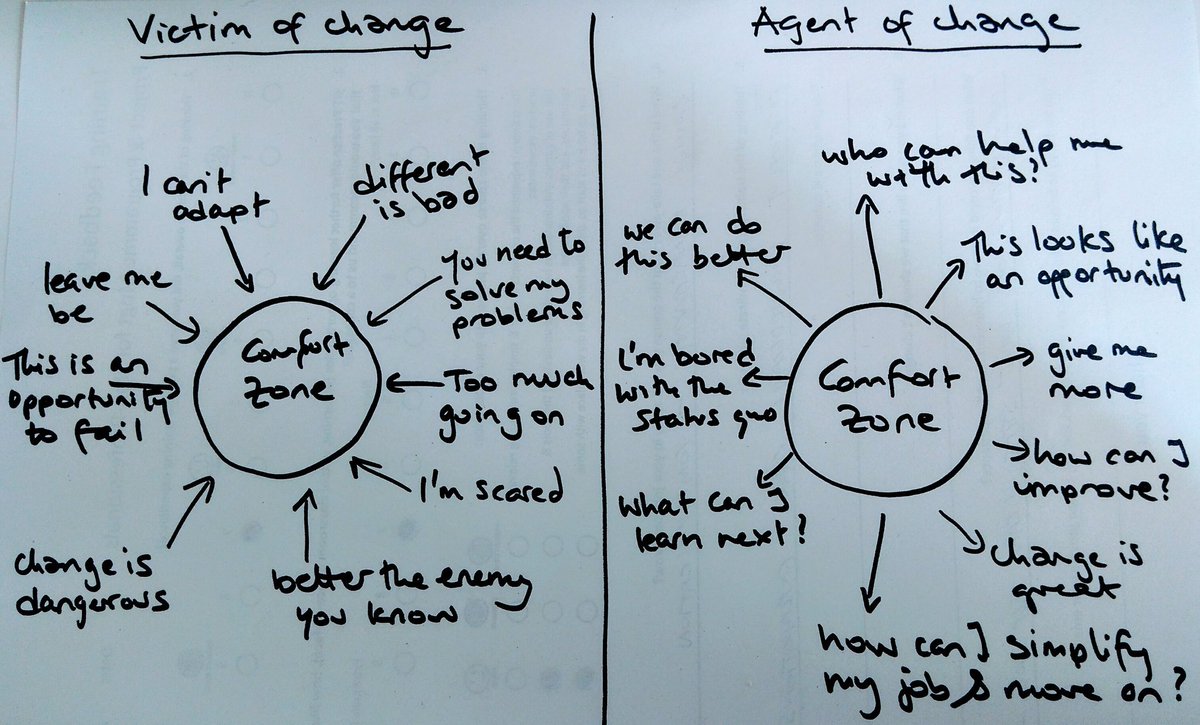 Victim of change
I can't
adapt
different
is bad
leave me
be
You need to
solve my
problems
This is an
opportunity
to fail
Comfort
Zone
Too much
going on
I'm scared
change is
dangerous
better the enemy
you know
Agent of change
who can help me
with this?
we can do
this better
This looks like
an opportunity
I'm bored
with the
status quo
Comfort
Zone
give me
more
how can I
improve?
What can I
learn next?
change is
great
how can I simplify
my job & move on?